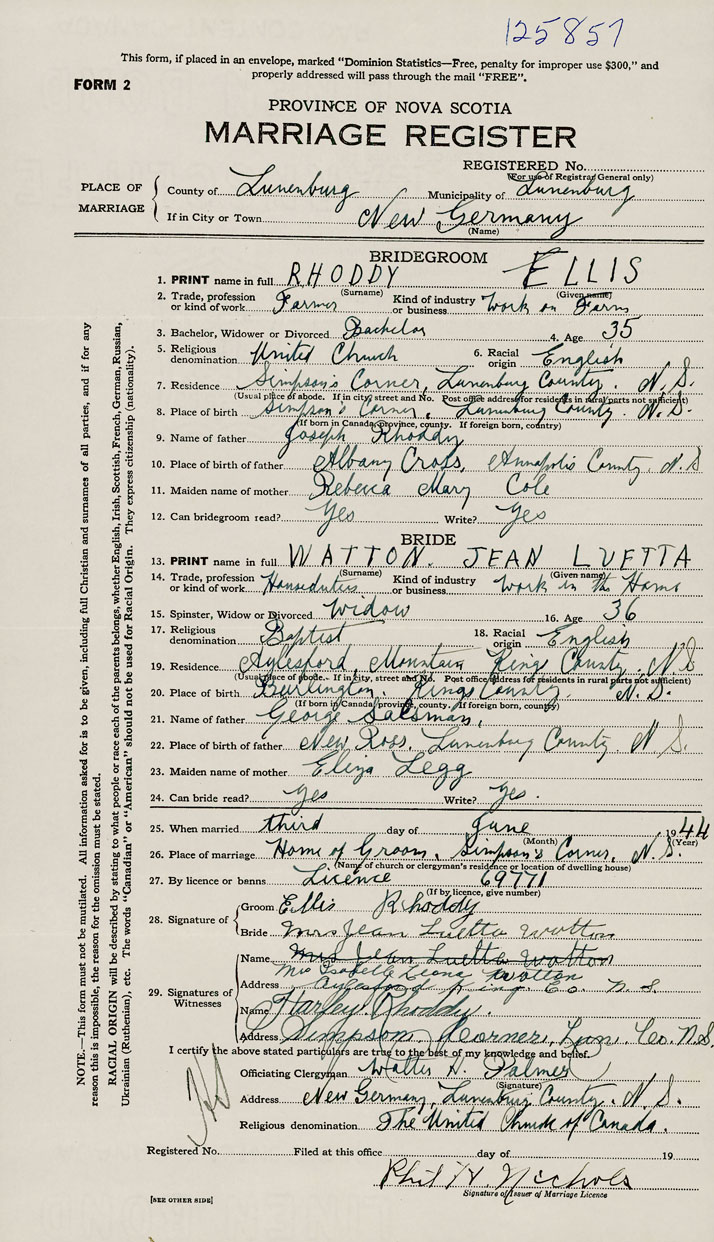 125857
This form, if placed in an envelope, marked "Dominion Statistics—Free, penalty for improper use $300," and
properly addressed will pass through the mail "FREE".
FORM 2
PROVINCE OF NOVA SCOTIA
MARRIAGE REGISTER
REGISTERED No.
(For use of Registrar General only)
PLACE OF MARRIAGE
County of Lunenburg Municipality of Lunenburg
If in City or Town New Germany
(Name)
BRIDEGROOM
1. PRINT name in full RHODDY ELLIS
(Surname) (Given name)
2. Trade, profession or kind of work Farmer Kind of industry or business Work on Farm
3. Bachelor, Widower or Divorced Bachelor 4. Age 35
5. Religious denomination United Church 6. Racial origin English
7. Residence Simpson's Corner, Lunenburg County. N.S.
(Usual place of abode. If in city, street and No. Post office address for residents in rural parts not sufficient)
8. Place of birth Simpson's Corner, Lunenburg County. N.S.
(If born in Canada, province, county. If foreign born, country)
9. Name of father Joseph Rhoddy
10. Place of birth of father Albany Cross, Annapolis County. N.S
11. Maiden name of mother Rebecca Mary Cole
12. Can bridegroom read? Yes Write? Yes
BRIDE
13. PRINT name in full WATTON. JEAN LUETTA
(Surname) (Given name)
14. Trade, profession or kind of work Houseduties Kind of industry or business Work in the Home
15. Spinster, Widow or Divorced Widow 16. Age 36
17. Religious denomination Baptist 18. Racial origin English
19. Residence Aylesford, Mountain Kings County. N.S
(Usual place of abode. If in city, street and No. Post office address for residents in rural parts not sufficient)
20. Place of birth Burlington. Kings County. N.S.
(If born in Canada, province, county. If foreign born, country)
21. Name of father George Salsman,
22. Place of birth of father New Ross, Lunenburg County. N.S.
23. Maiden name of mother Eliza Legg
24. Can bride read? Yes Write? Yes.
25. When married third day of June 1944
(Month) (Year)
26. Place of marriage Home of Groom, Simpson's Corner, N.S.
(Name of church or clergyman's residence or location of dwelling house)
27. By licence or banns Licence 69771
(If by licence, give number)
28. Signature of
Groom Ellis Rhoddy
Bride Mrs Jean Luetta Wotton
29. Signatures of Witnesses
Name Mrs Jean Luetta Wotton
Mrs Isabelle Leona Wotton
Address Aylesford King Co. N.S.
Name Harley Rhoddy.
Address Simpson Corner, Lun. Co. N.S.
I certify the above stated particulars are true to the best of my knowledge and belief.
Officiating Clergyman Walter H. Palmer
(Signature)
Address New Germany, Lunenburg County. N.S.
Religious denomination The United Church of Canada.
Registered No. Filed at this office day of 19
Phil H. Nichols
Signature of Issuer of Marriage Licence
[SEE OTHER SIDE]
NOTE.—This form must not be mutilated. All information asked for is to be given, including full Christian and surnames of all parties, and if for any
reason this is impossible, the reason for the omission must be stated.
RACIAL ORIGIN will be described by stating to what people or race each of the parents belongs, whether English, Irish, Scottish, French, German, Russian,
Ukrainian (Ruthenian), etc. The words "Canadian" or "American" should not be used for Racial Origin. They express citizenship (nationality).